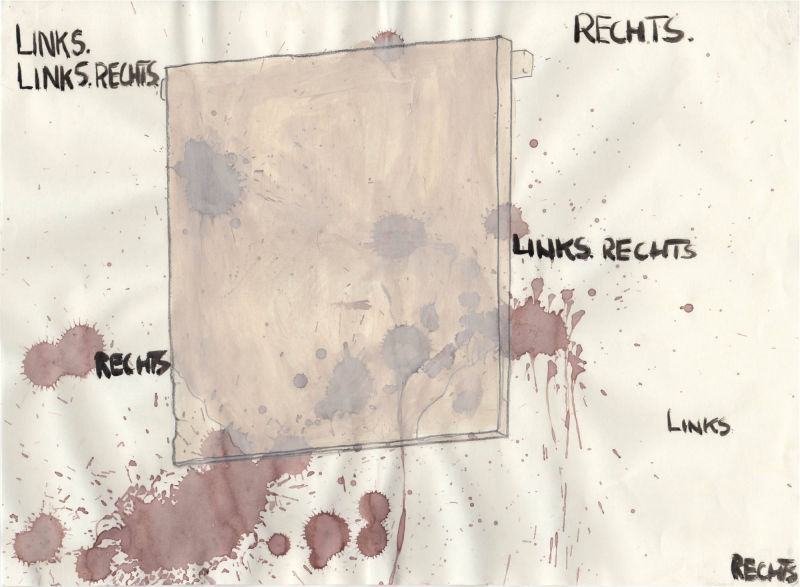 LINKS.
LINKS. RECHTS
RECHTS.
LINKS. RECHTS
RECHTS
LINKS
RECHTS